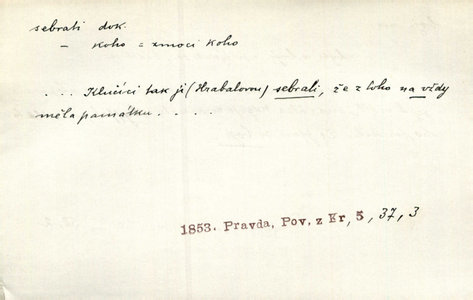 sebrati dok.
– koho = zmoci koho
. . . Klučíci tak ji (Hrabalovou) sebrali, že z toho na vždy
měla památku. . . .
1853. Pravda, Pov. z Kr, 5, 37, 3